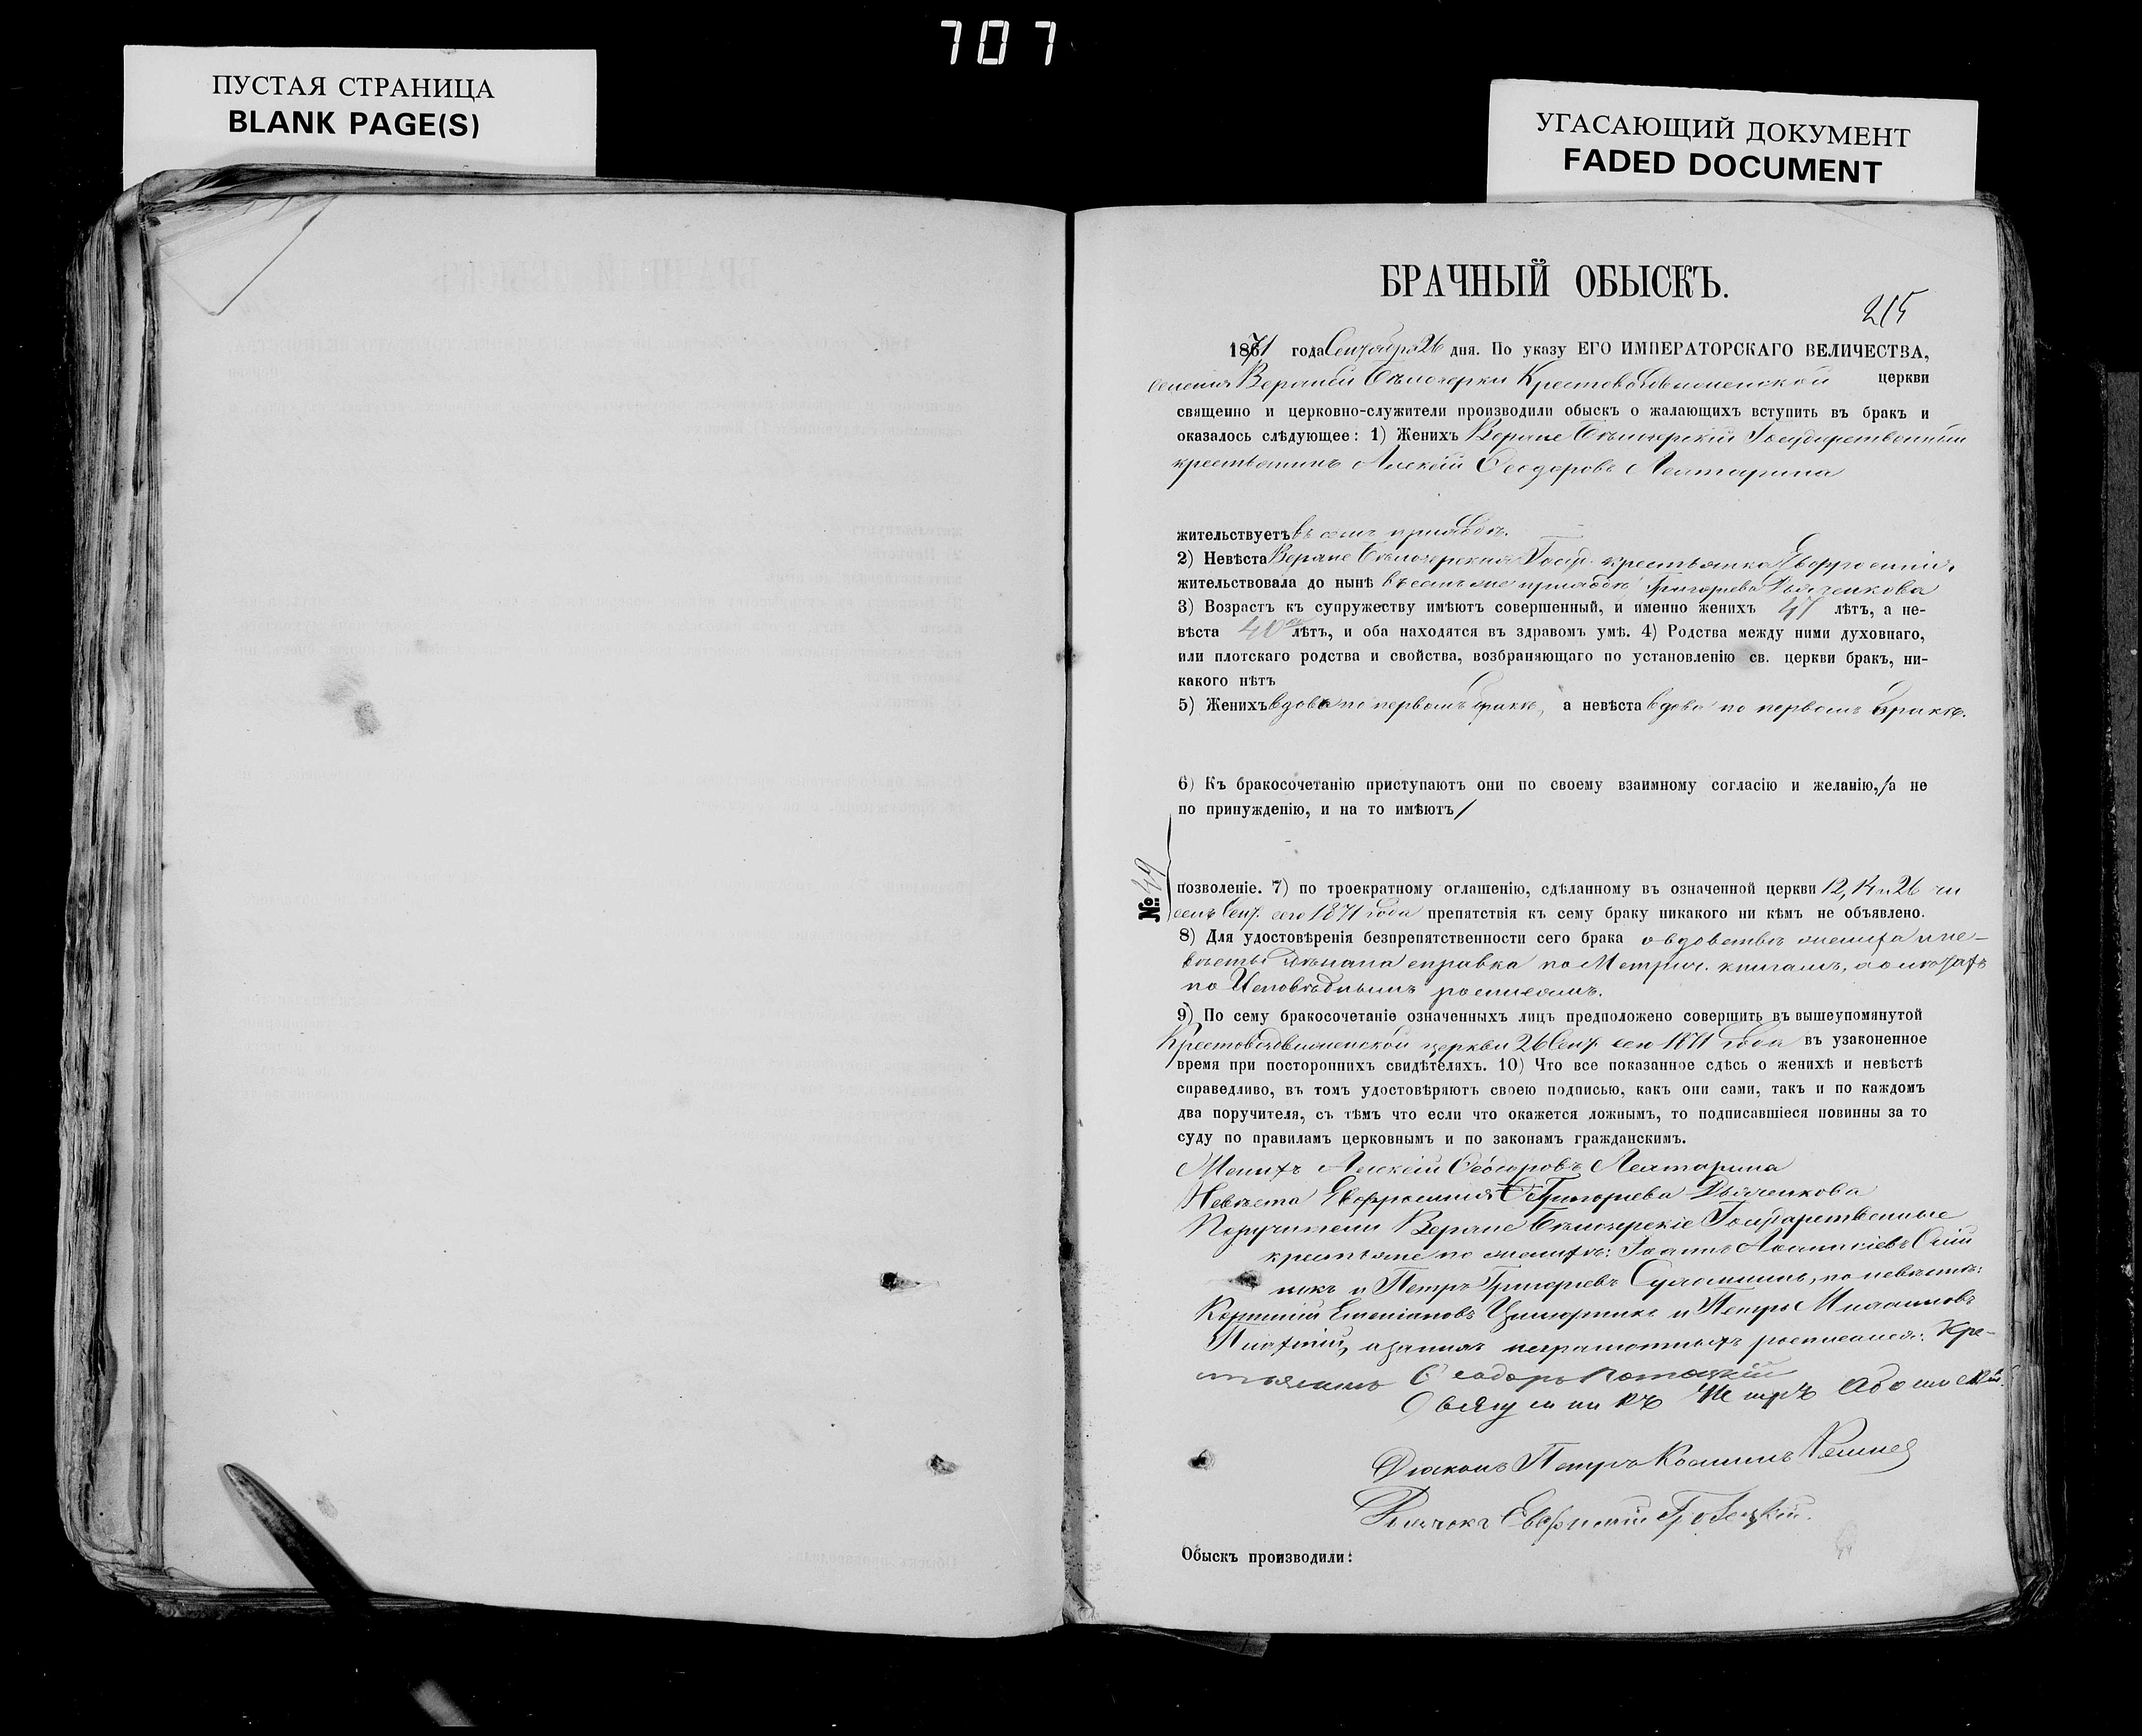 707
ПУСТАЯ СТРАНИЦА
BLANK PAGE(S)
УГАСАЮЩИЙ ДОКУМЕНТ
FADED DOCUMENT
БРАЧНЫЙ ОБЫСКЪ.
215
1871 года Сентября 26 дня. По указу ЕГО ИМПЕРАТОРСКАГО ВЕЛИЧЕСТВА,
селенія Верхней Бѣлозерки Крестовоздвиженской церкви
священно и церковно-служители производили обыскъ о жалающихъ вступить въ бракъ и
оказалось слѣдующее: 1) Женихъ Верхне Бѣлозерскій Государственный
крестьянинъ Алексій Ѳеодоровъ
жительствуетъ въ семъ приходѣ.
2) Невѣста Верхне Бѣлозерская Госуд. крестьянка Евфросинія
жительствовала до нынѣ въ семъ же приходѣ Григорьева Дьяченкова
3) Возрастъ къ супружеству имѣютъ совершенный, и именно женихъ 47 лѣтъ, а не-
вѣста 40 лѣтъ, и оба находятся въ здравомъ умѣ. 4) Родства между ними духовнаго,
или плотскаго родства и свойства, возбраняющаго по установленію св. церкви бракъ, ни-
какого нѣтъ
5) Женихъ вдовъ по первомъ бракѣ, а невѣста вдова по первомъ бракѣ.
6) Къ бракосочетанію приступаютъ они по своему взаимному согласію и желанію, /а не
по принужденію, и на то имѣютъ/
№ 49
позволеніе. 7) по троекратному оглашенію, сдѣланному въ означенной церкви 12, 14 и 26 чи
селъ Сент. сего 1871 года препятствія къ сему браку никакого ни кѣмъ не объявлено.
8) Для удостовѣренія безпрепятственности сего брака о вдовствѣ жениха и не-
вѣсты сдѣлана справка по Метрич. книгамъ, а о лѣтахъ
по Исповѣднымъ росписямъ.
9) По сему бракосочетаніе означенныхъ лицъ предположено совершить въ вышеупомянутой
Крестовоздвиженской церкви 26 Сент. сего 1871 года въ узаконенное
время при постороннихъ свидѣтеляхъ. 10) Что все показанное сдѣсь о женихѣ и невѣстѣ
справедливо, въ томъ удостовѣряютъ своею подписью, какъ они сами, такъ и по каждомъ
два поручителя, съ тѣмъ что если что окажется ложнымъ, то подписавшіеся повинны за то
суду по правиламъ церковнымъ и по законамъ гражданскимъ.
Женихъ Алексій Ѳеодоровъ
Невѣста Евфросинія Григорьева Дьяченкова
Поручители Верхне Бѣлозерскіе Государственные
крестьяне по женихѣ: Іоаннъ
и Петръ Григорьевъ по невѣстѣ:
Емеліановъ и Петръ
неграмотныхъ росписался: Кре-
стьянинъ Ѳеодоръ
Священникъ Петръ
Діаконъ Петръ
Дьячокъ
Обыскъ производили: